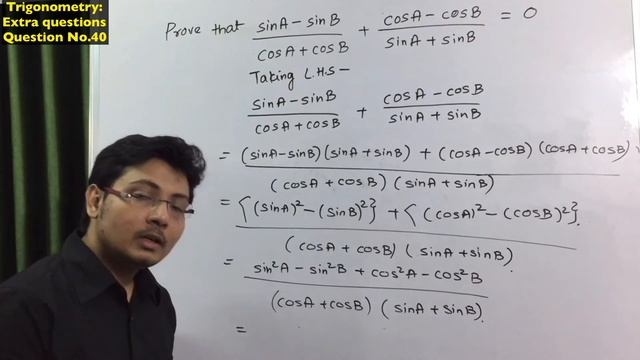 Trigonometry:
Extra questions
Question No.40
Prove that (sinA − sinB)/(cosA + cosB) + (cosA − cosB)/(sinA + sinB) = 0
Taking L.H.S −
(sinA − sinB)/(cosA + cosB) + (cosA − cosB)/(sinA + sinB)
= (sinA−sinB)(sinA+sinB) + (cosA−cosB)(cosA+cosB)
(cosA + cosB)(sinA + sinB)
= {(sinA)² − (sinB)²} + {(cosA)² − (cosB)²}
(cosA + cosB)(sinA + sinB)
= sin²A − sin²B + cos²A − cos²B
(cosA + cosB)(sinA + sinB)
=